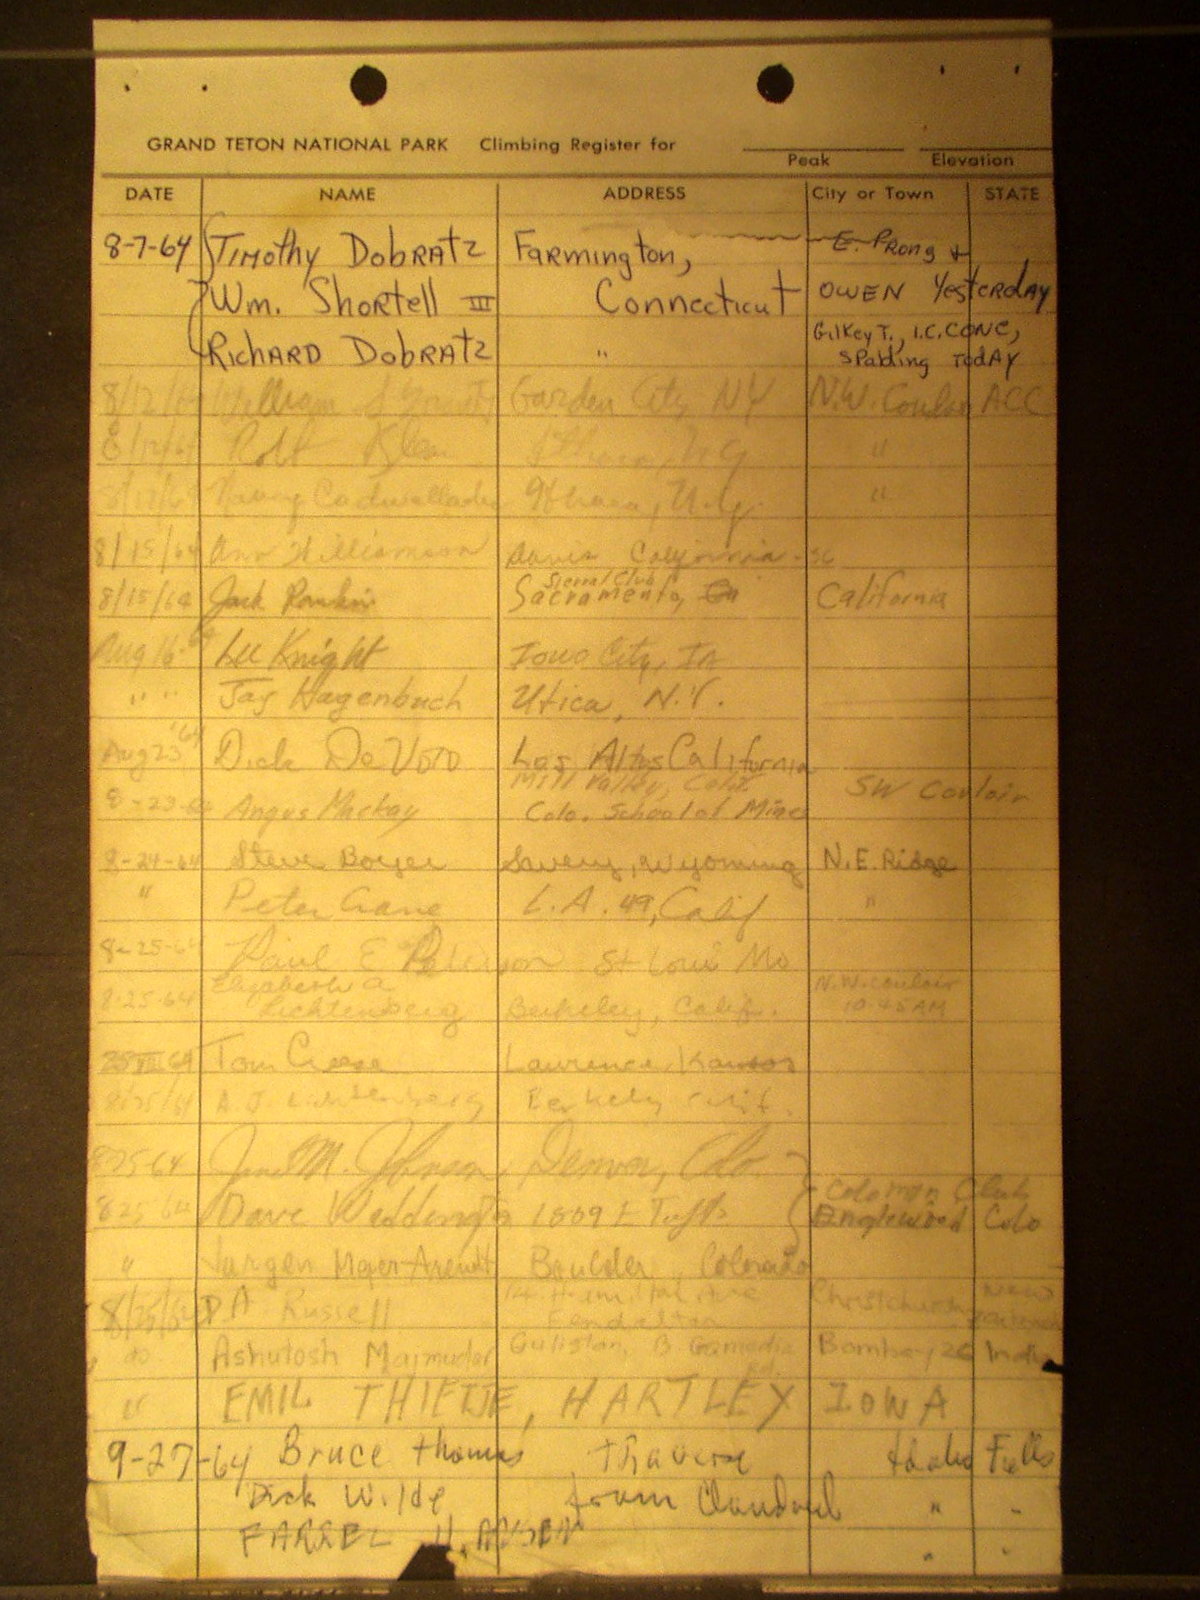 GRAND TETON NATIONAL PARK Climbing Register for
Peak Elevation
DATE NAME ADDRESS City or Town STATE
8-7-64 Timothy Dobratz Farmington, E. Prong +
Wm. Shortell III Connecticut OWEN Yesterday
Richard Dobratz " Gilkey T., I.C. CONE,
Spalding Today
8/12/64 William Garden City NY N.W. Couloir ACC
8/12/64 Rolf Ithaca, N.Y. "
Cadwallader Ithaca, N.Y. "
8/15/64 Ann Williamson Davis California
Sierra Club
8/15/64 Jack Rankin Sacramento, California
Aug 16 '64 Lee Knight Iowa City, IA
" " Jay Hagenbuch Utica, N.Y.
Aug 23 '64 Dick DeVoto Los Altos California
Mill Valley, Calif
8-23-64 Angus Mackay Colo. School of Mines SW Couloir
8-24-64 Steve Boyer Savery, Wyoming N.E. Ridge
" Peter Crane L.A. 49, Calif "
8-25-64 Paul E Peterson St Louis Mo
Elizabeth A. N.W. Couloir
8-25-64 Lichtenberg Berkeley, Calif. 10:45 AM
25 VIII 64 Tom Lawrence, Kansas
8/25/64 A. J. Lichtenberg Berkeley Calif.
8 25 64 M. Johnson, Denver, Colo.
Club
8 25 64 Dave 1809 E Tufts Englewood Colo
" Jurgen Meyer-Arendt Boulder, Colorado
8/25/64 D.A Russell 14 Hamilton Ave Christchurch New Zealand
Fendalton
do Ashutosh Majmudar Gulistan, Bombay 26 India
Rd.
" EMIL THIETJE, HARTLEY IOWA
9-27-64 Bruce Thomas Idaho Falls
Dick Wilde from " "
FARREL " "